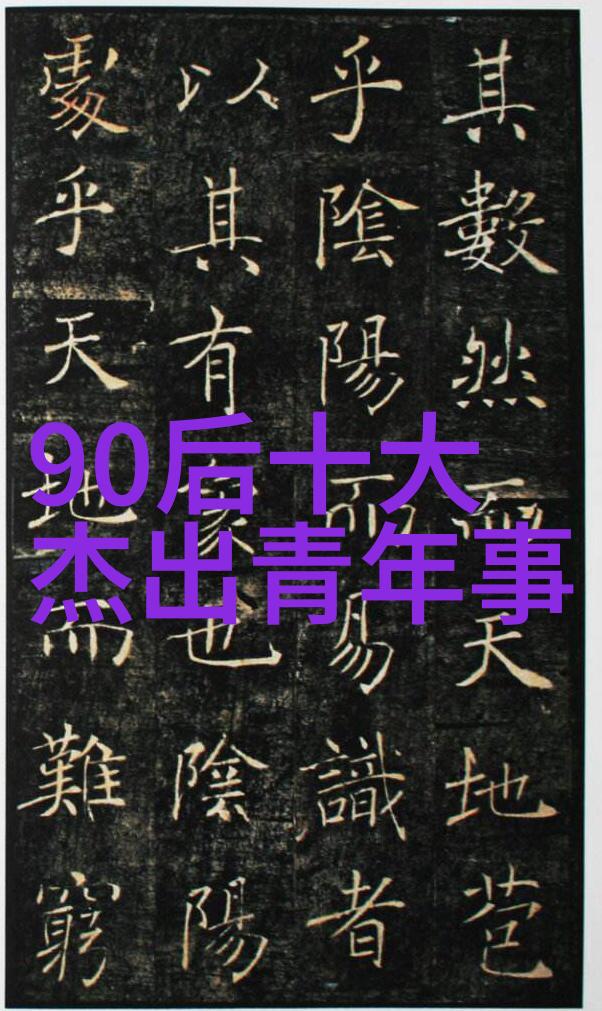 其數然而天地苞
乎陰陽而易識者
以其有象也陰陽
處乎天地而難窮
90后十大
杰出青年事